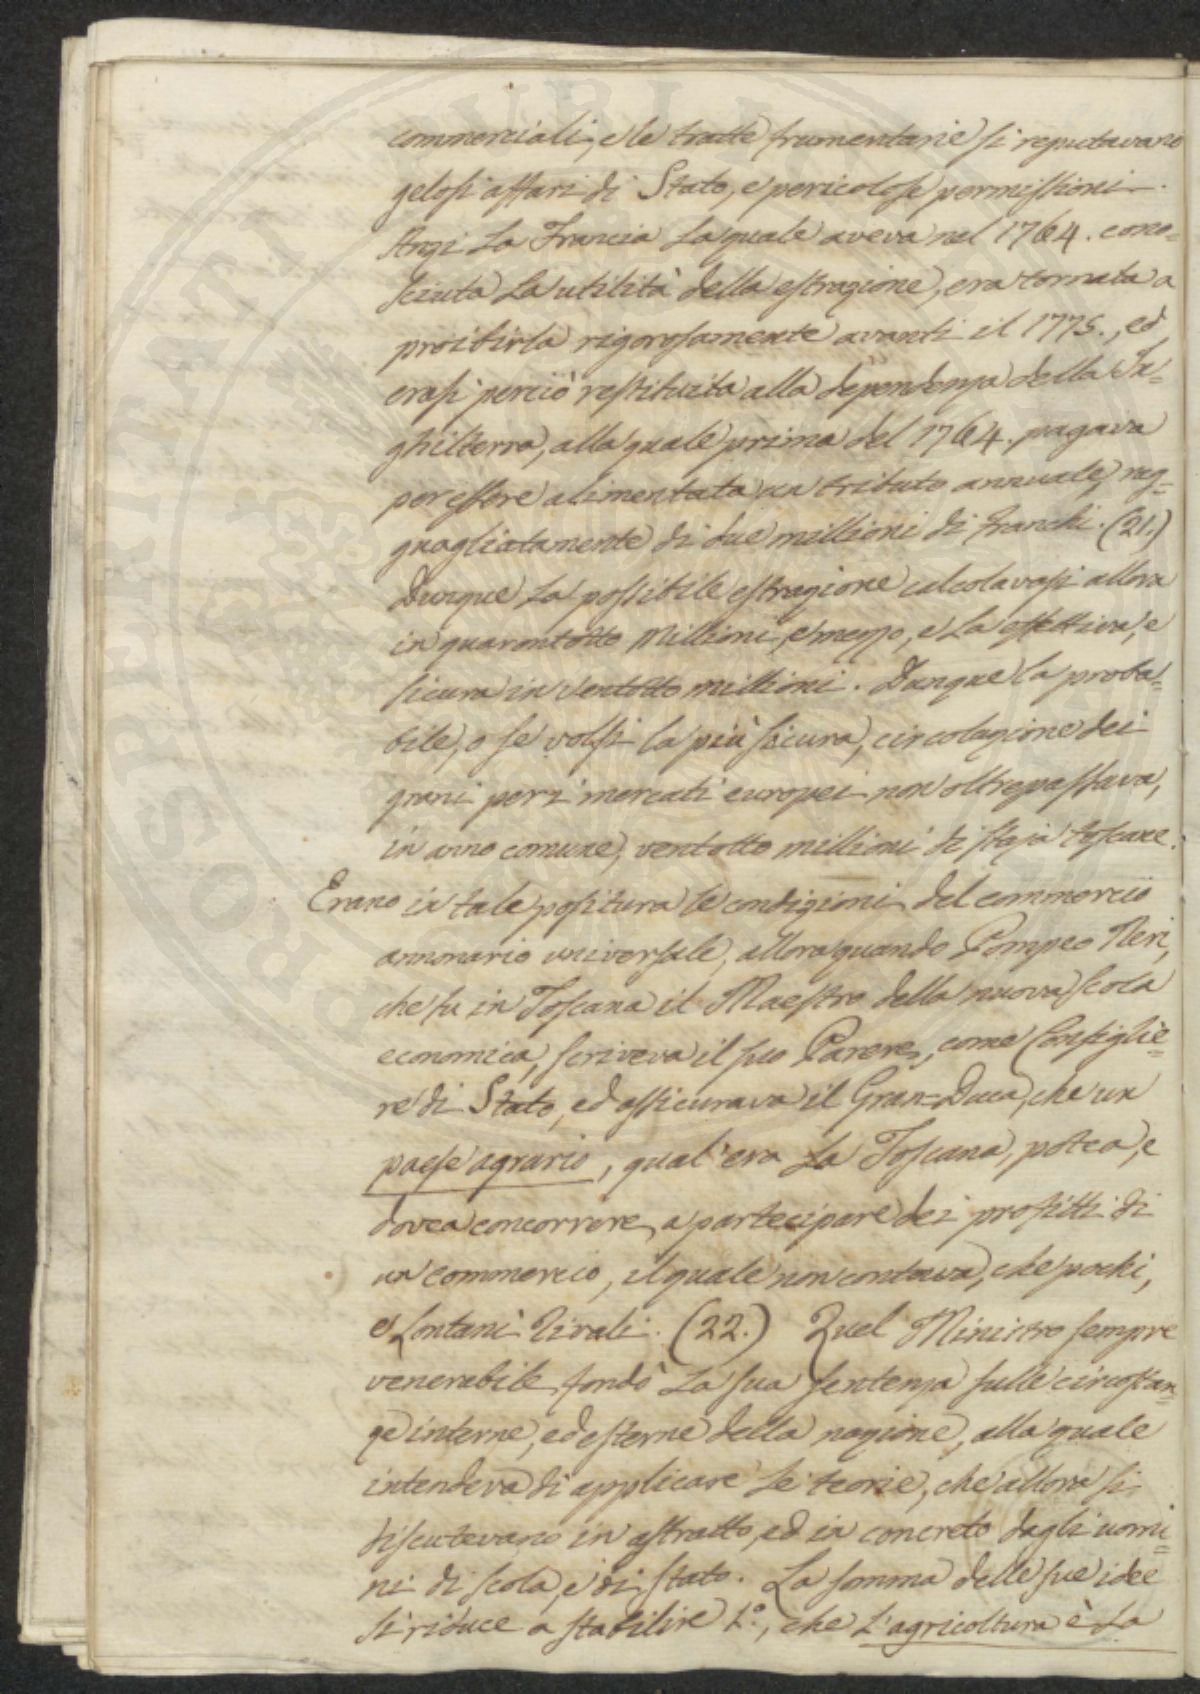 commerciali, e le tratte frumentarie si reputavano
gelosi affari di Stato, e pericolose permissioni.
Anzi La Francia La quale aveva nel 1764. cono=
sciuta La utilità della estrazione, era tornata a
proibirla rigorosamente avanti il 1775., ed
erasi perciò restituita alla dependenza della In=
ghilterra, alla quale prima del 1764. pagava
per essere alimentata un tributo annuale, rag=
guagliatamente di due millioni di franchi. (21.)
Dunque La possibile estrazione calcolavasi allora
in quarantotto Millioni, e mezzo, e La effettiva, e
sicura in ventotto millioni. Dunque la proba=
bile, o se volsi la più sicura, circolazione dei
grani per i mercati europei non oltrepassava,
in anno comune, ventotto millioni di staja toscane.
Erano in tale positura le condizioni del commercio
annonario universale, allora quando Pompeo Neri,
che fu in Toscana il Maestro della nuova scola
economica, scriveva il suo Parere, come Consiglie=
re di Stato, ed assicurava il Gran=Duca, che un
paese agrario, qual'era La Toscana, potea, e
dovea concorrere, a partecipare dei profitti di
un commercio, il quale non contava, che pochi,
e Lontani rivali. (22.) Quel Ministro sempre
venerabile fondò La sua sentenza sulle circostan=
ze interne, ed esterne della nazione, alla quale
intendeva di applicare Le teorie, che allora si
discutevano in astratto, ed in concreto dagli uomi=
ni di scola, e di stato. La somma delle sue idee
si riduce a stabilire 1.°, che L'agricoltura è La
PROSPERITATI PUBLICAE